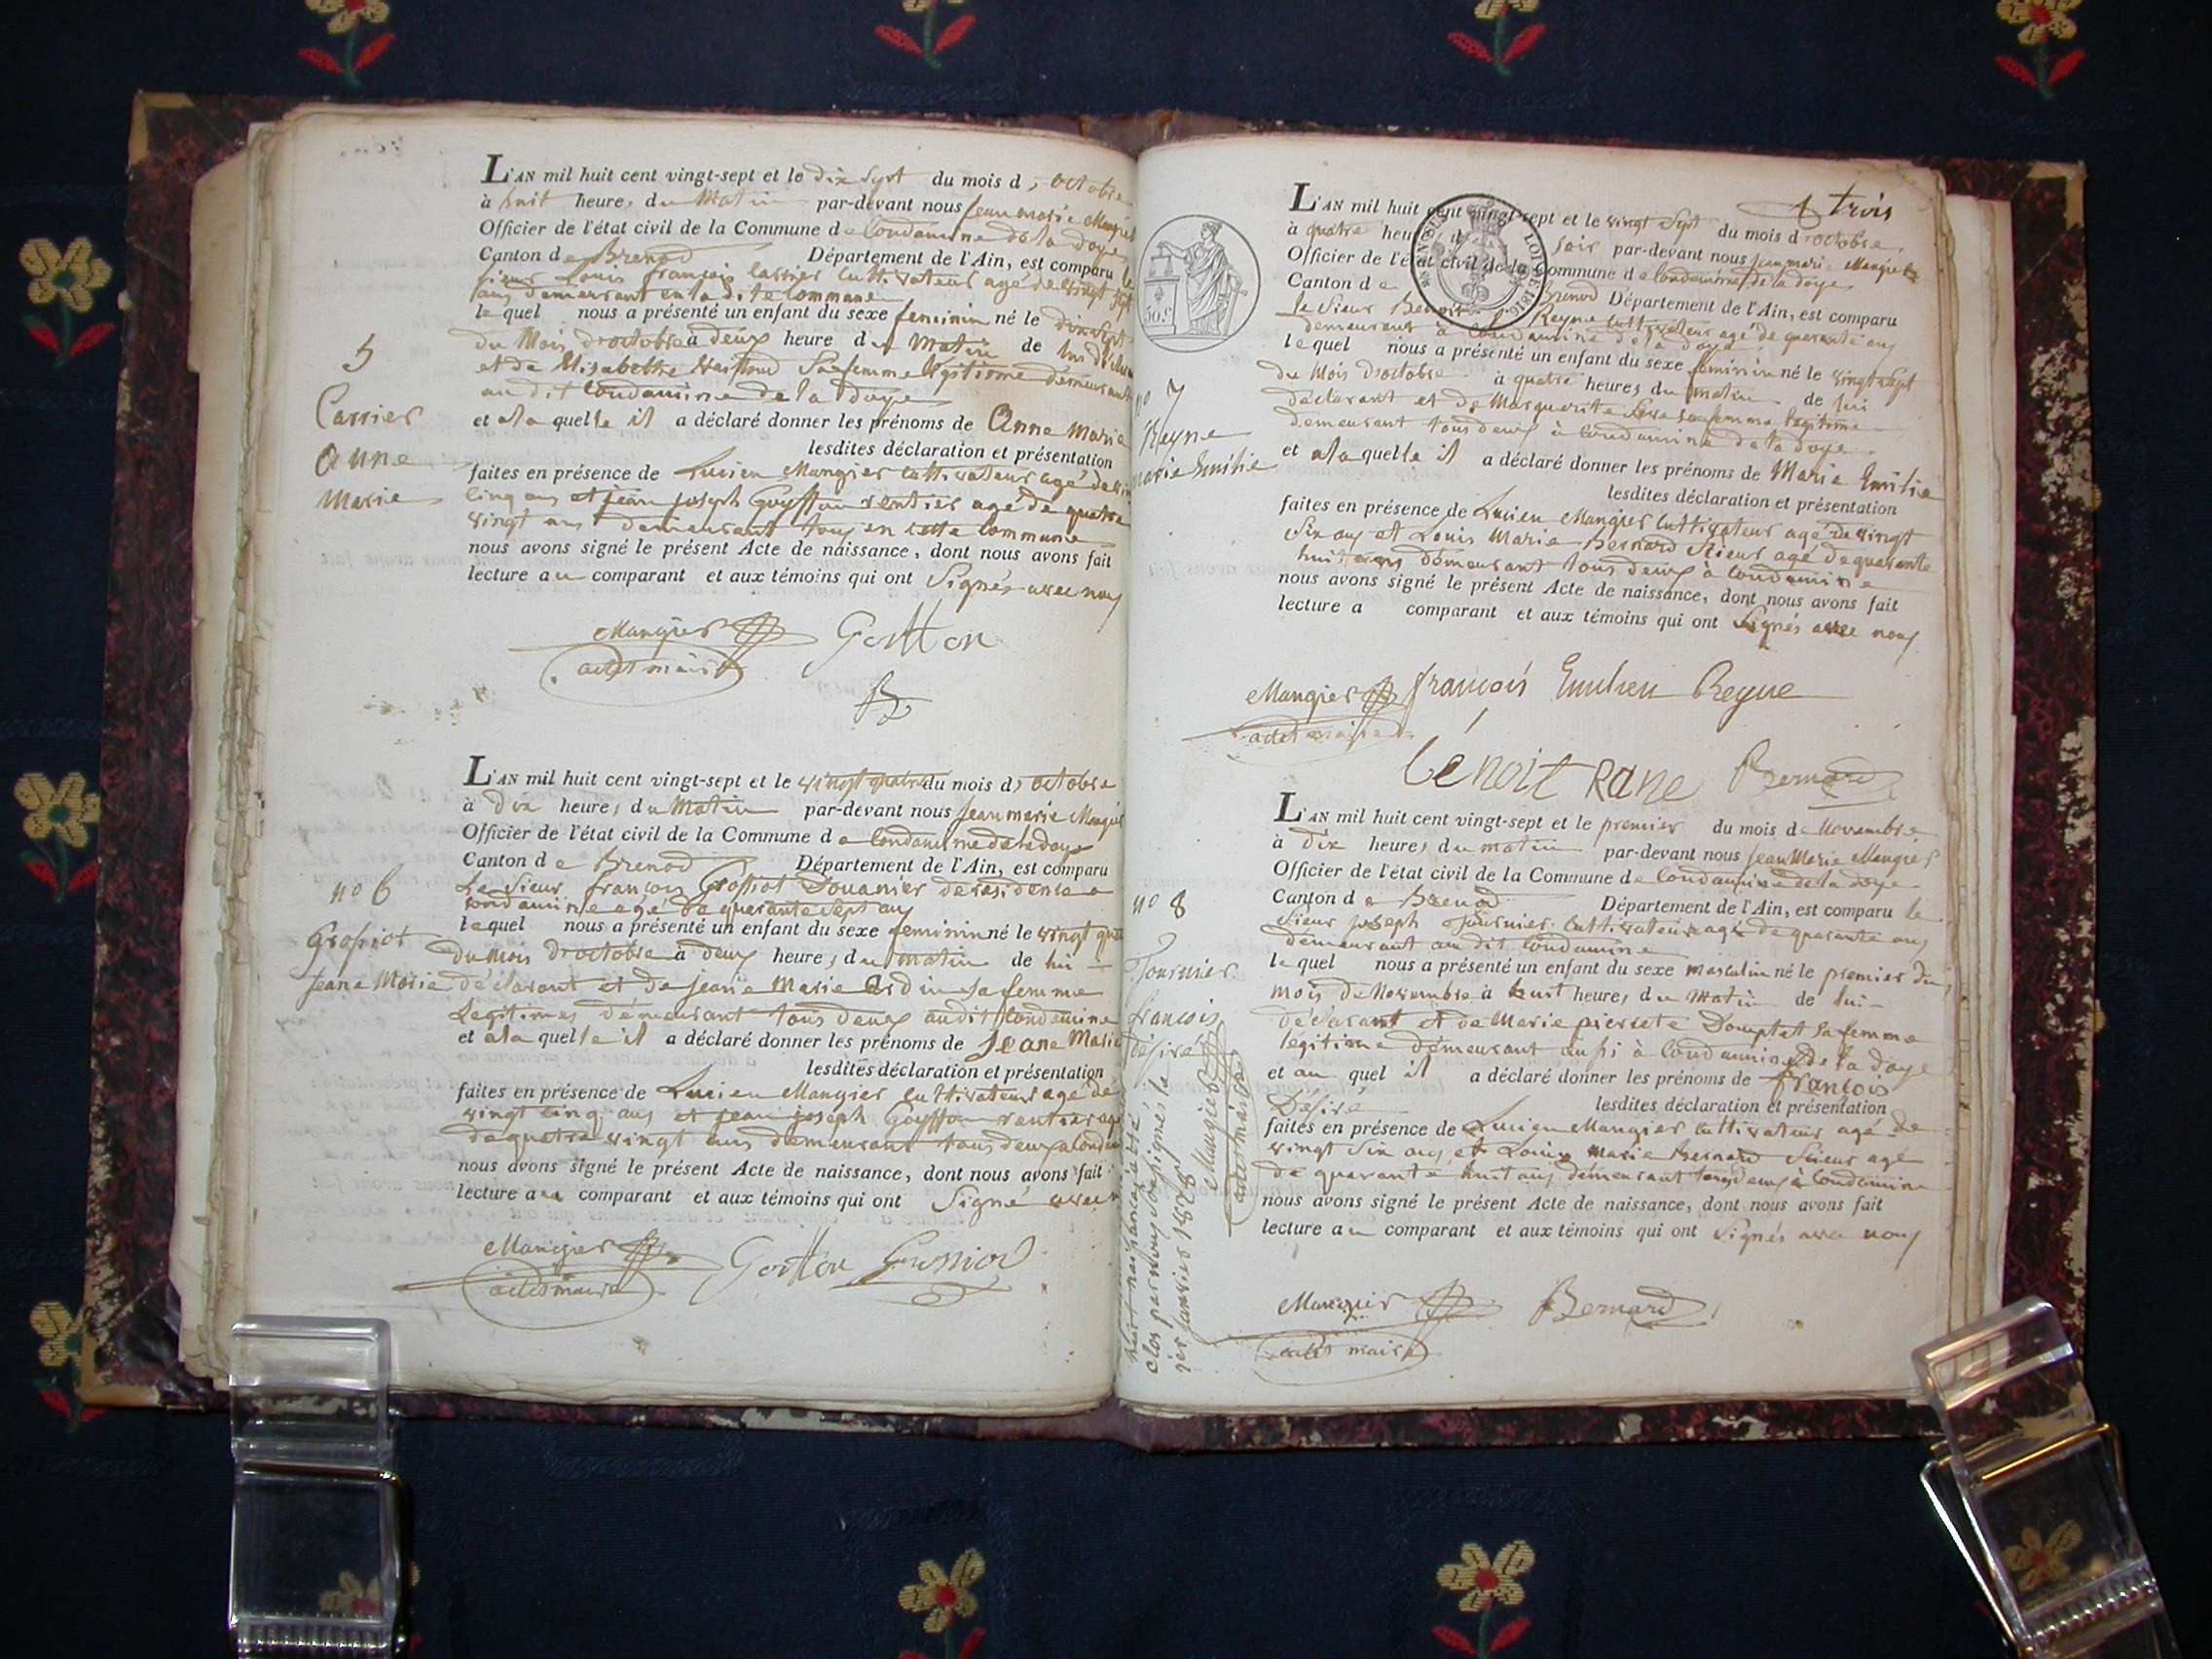 L'AN mil huit cent vingt-sept et le dix Sept du mois d'octobre
à huit heures du Matin par-devant nous jean marie Mangier
Officier de l'état civil de la Commune de Condamine de la doye
Canton de Brenod Département de l'Ain, est comparu le
sieur Louis françois Carrier Cultivateur agé de vingt Sept
ans demeurant en la dite Commune
le quel nous a présenté un enfant du sexe feminin né le dix Sept
du Mois d'octobre à deux heure du Matin de lui
et de Elisabethe Sa femme légitime demeurant
au dit Condamine de la doye
et a la quelle il a déclaré donner les prénoms de Anne Marie
lesdites déclaration et présentation
faites en présence de Lucien Mangier Cultivateur agé de
Cinq ans et jean joseph Goyffon rentier agé de quatre
vingt ans demeurant tous en cette Commune
nous avons signé le présent Acte de naissance, dont nous avons fait
lecture au comparant et aux témoins qui ont Signés avec nous
5
Carrier
Anne
Marie
Mangier Goiffon
adjt maire
L'AN mil huit cent vingt-sept et le vingt quatre du mois d'octobre
à Dix heures du Matin par-devant nous Jean marie Mangier
Officier de l'état civil de la Commune de Condamine de la doye
Canton de Brenod Département de l'Ain, est comparu
Le Sieur françois Grossiot Douanier de résidence a
Condamine agé de quarante Sept ans
le quel nous a présenté un enfant du sexe feminin né le vingt
du Mois d'octobre à deux heures du matin de lui
déclarant et de jeane Marie sa femme
Legitimes demeurant tous deux audit Condamine
et a la quelle il a déclaré donner les prénoms de Jeane Marie
lesdites déclaration et présentation
faites en présence de Lucien Mangier Cultivateur agé de
vingt Cinq ans et jean joseph Goyffon rentier agé
de quatre vingt ans demeurant tous deux a
nous avons signé le présent Acte de naissance, dont nous avons fait
lecture au comparant et aux témoins qui ont Signé avec
no 6
Grossiot
Jeane Marie
Mangier Goiffon Grossiot
adjt maire
trois
LOI DE 1816
50.c
L'AN mil huit cent vingt-sept et le vingt Sept du mois d'octobre
à quatre heures du Soir par-devant nous Jean marie Mangier
Officier de l'état civil de la Commune de Condamine de la doye
Canton de Brenod Département de l'Ain, est comparu
le Sieur Benoit Reyne Cultivateur agé de quarante ans
demeurant à Condamine de la doye
le quel nous a présenté un enfant du sexe feminin né le vingt Sept
du Mois d'octobre à quatre heures du matin de lui
déclarant et de Marguerite sa femme légitime
demeurant tous deux à Condamine de la doye
et a la quelle il a déclaré donner les prénoms de Marie Emilie
lesdites déclaration et présentation
faites en présence de Lucien Mangier Cultivateur agé de vingt
Six ans et Louis Marie Bernard Scieur agé de quarante
huit ans demeurant tous deux à Condamine
nous avons signé le présent Acte de naissance, dont nous avons fait
lecture a comparant et aux témoins qui ont Signés avec nous
no 7
Reyne
Marie Emilie
Mangier françois Reyne
adjt maire
benoit Rane Bernard
L'AN mil huit cent vingt-sept et le premier du mois de Novembre
à Dix heures du matin par-devant nous Jean Marie Mangier
Officier de l'état civil de la Commune de Condamine de la doye
Canton de Brenod Département de l'Ain, est comparu le
Sieur joseph Tournier Cultivateur agé de quarante ans
demeurant au dit Condamine
le quel nous a présenté un enfant du sexe masculin né le premier du
mois de Novembre à huit heures du Matin de lui
déclarant et de Marie pierrete sa femme
légitime demeurant aussi à Condamine de la doye
et au quel il a déclaré donner les prénoms de françois
Désiré lesdites déclaration et présentation
faites en présence de Lucien Mangier Cultivateur agé de
vingt Six ans et Louis Marie Bernard Scieur agé
de quarante huit ans demeurant tous deux à Condamine
nous avons signé le présent Acte de naissance, dont nous avons fait
lecture au comparant et aux témoins qui ont Signés avec nous
no 8
Tournier
françois
désiré
huit naissances a été
clos par nous soussigné le
1er janvier 1828
Mangier
adjt maire
Mangier Bernard
adjt maire